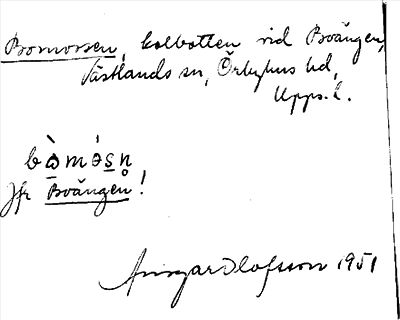 Bomossen, kolbotten vid Boängen,
Västlands sn, Örbyhus hd,
Upps. l.
bὼməs̠n̥
Jfr Boängen!
Ansgar Olofsson 1951